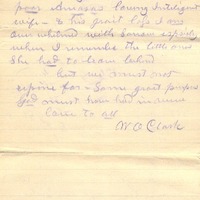 poor Amasas loving Intelligent
wife - & this great loss I am
over whelmed with sorrow especialy
when I remember the little ones
She had to leave behind
but we must not
repine for - Some great purpose
God must have had in mind
Came to all
W. O. Clark